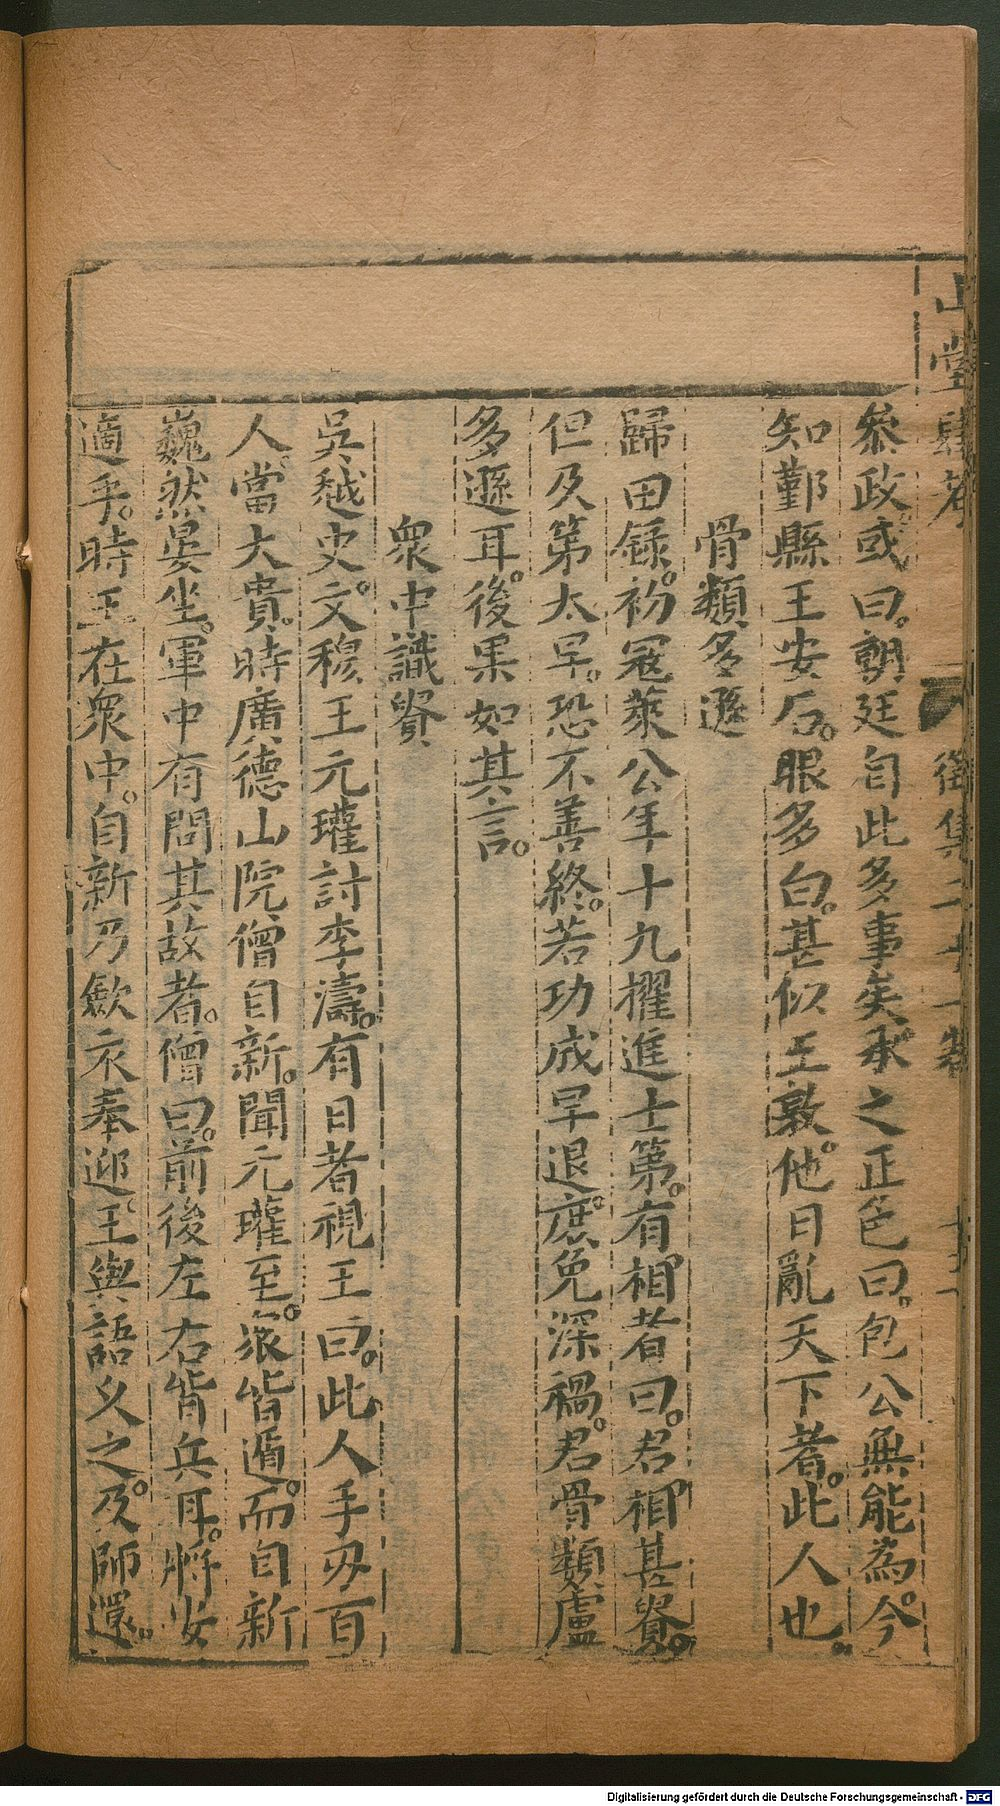 山堂肆考 徵集二十一卷
叅政或曰朝廷自此多事矣承之正色曰包公無能為今
知鄞縣王安石眼多白甚似王敦他日亂天下者此人也
骨類多遜
歸田錄初冦萊公年十九擢進士第有相者曰君相甚貴
但及第太早恐不善終若功成早退庶免深禍君骨類盧
多遜耳後果如其言
衆中識貴
吳越史文穆王元瓘討李濤有日者視王曰此人手刃百
人當大貴時廣德山院僧自新聞元瓘至衆皆遁而自新
巍然晏坐軍中有問其故者僧曰前後左右皆兵耳將安
適乎時王在衆中自新乃斂衣奉迎王與語乂之及師還
Digitalisierung gefördert durch die Deutsche Forschungsgemeinschaft - DFG